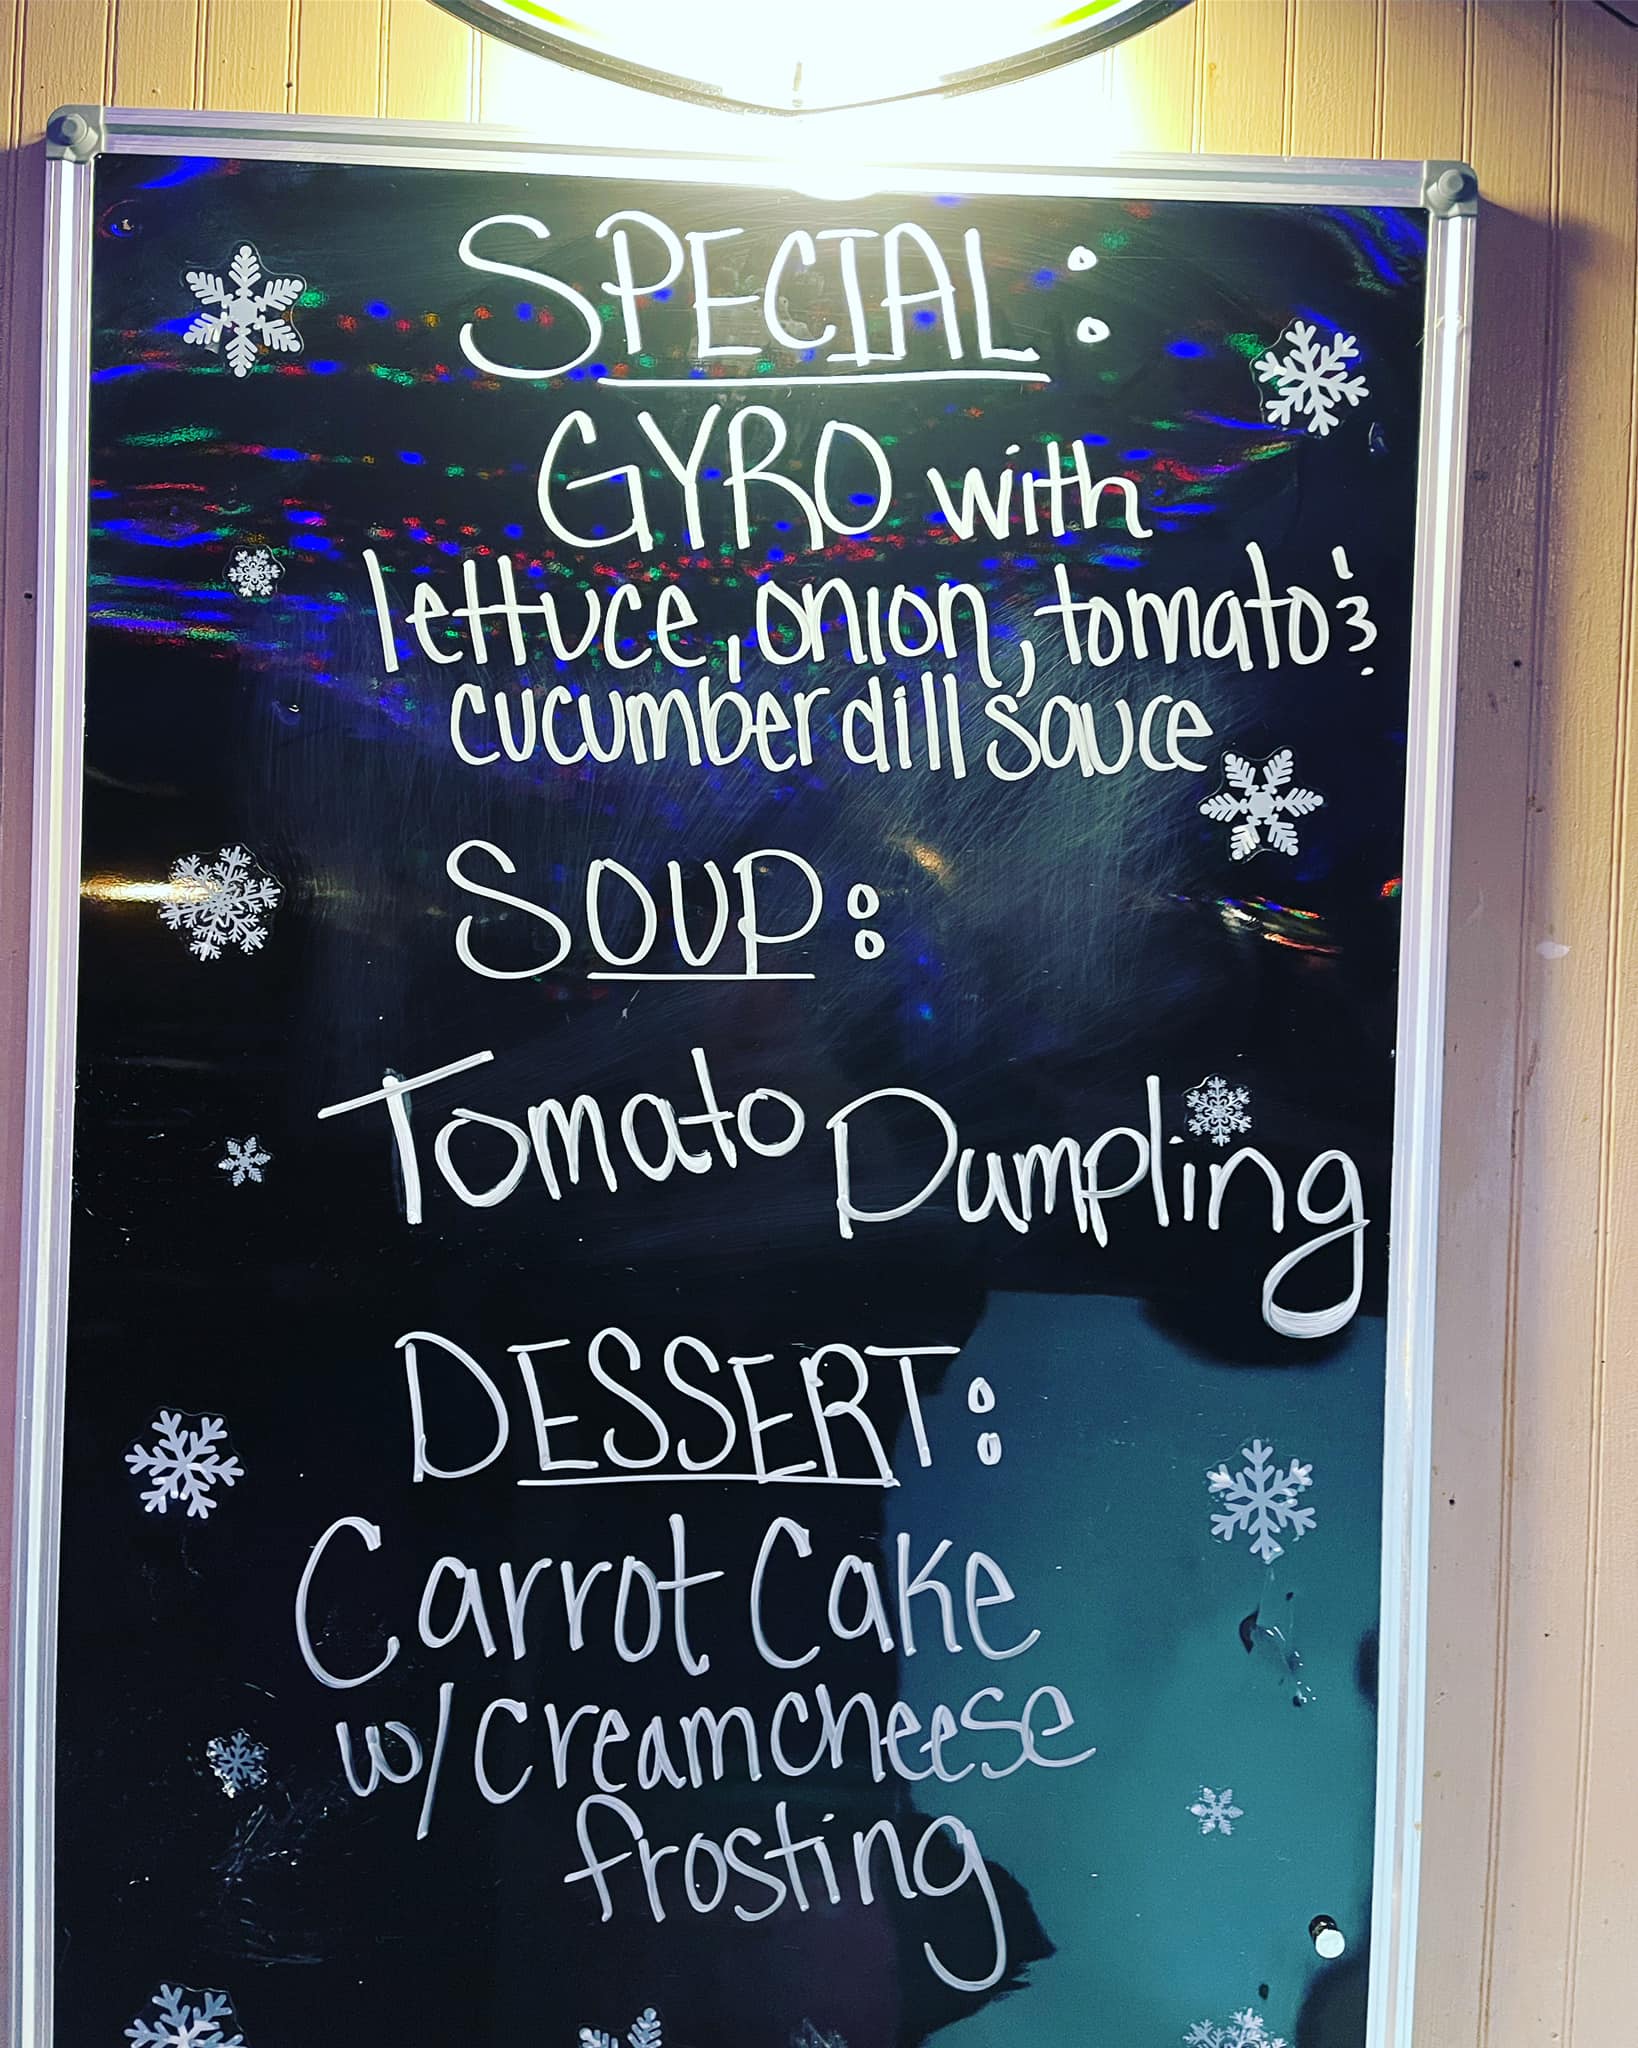 SPECIAL:
GYRO with
lettuce, onion, tomato &
cucumber dill sauce
SOUP:
Tomato Dumpling
DESSERT:
Carrot Cake
w/ creamcheese
frosting